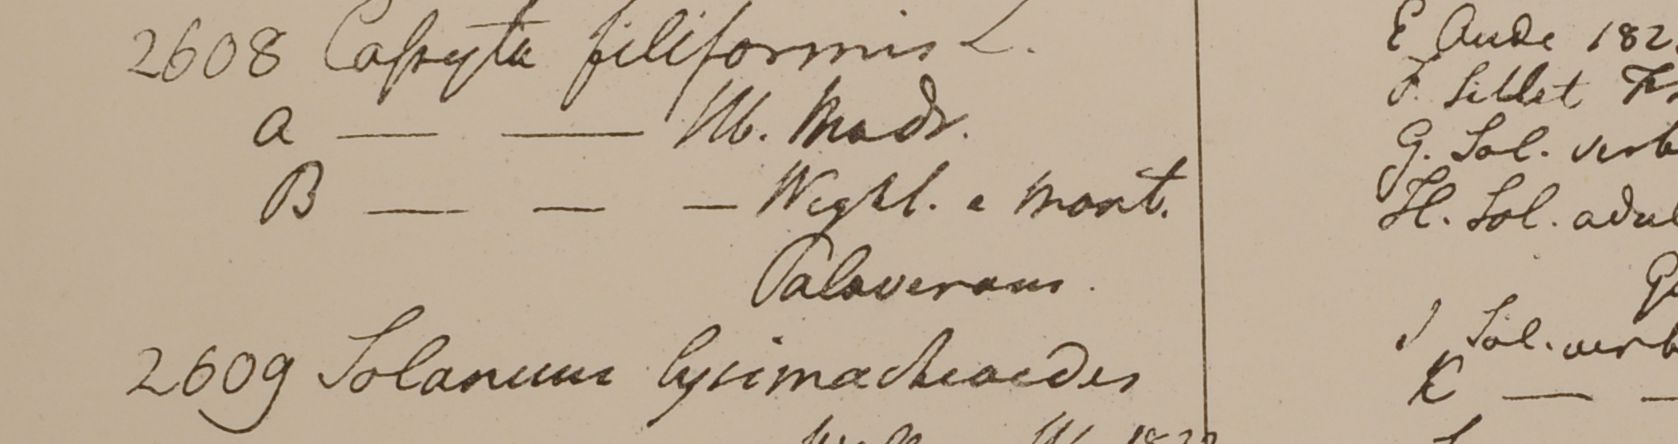 2608 Cassyta filiformis L.
A — — Hb. Madr.
B — — — Wight. e Mont.
Palaveram.
2609 Solanum lysimachioides
E Aude 182
F. Sillet
G. Sol. verb
H. Sol. adu
I Sol. verb
K — —